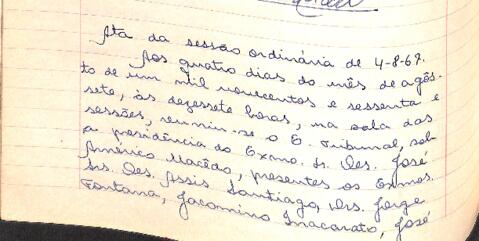 Ata da sessão ordinária de 4-8-67.
Aos quatro dias do mês de agôs-
to de um mil novecentos e sessenta e
sete, às dezessete horas, na sala das
sessões, reuniu-se o E. Tribunal, sob
a presidência do Exmo. Sr. Des. José
Américo Macêdo, presentes os Exmos.
Srs. Des. Assis Santiago, Drs. Jorge
Fontana, Jacomino Inacarato, José